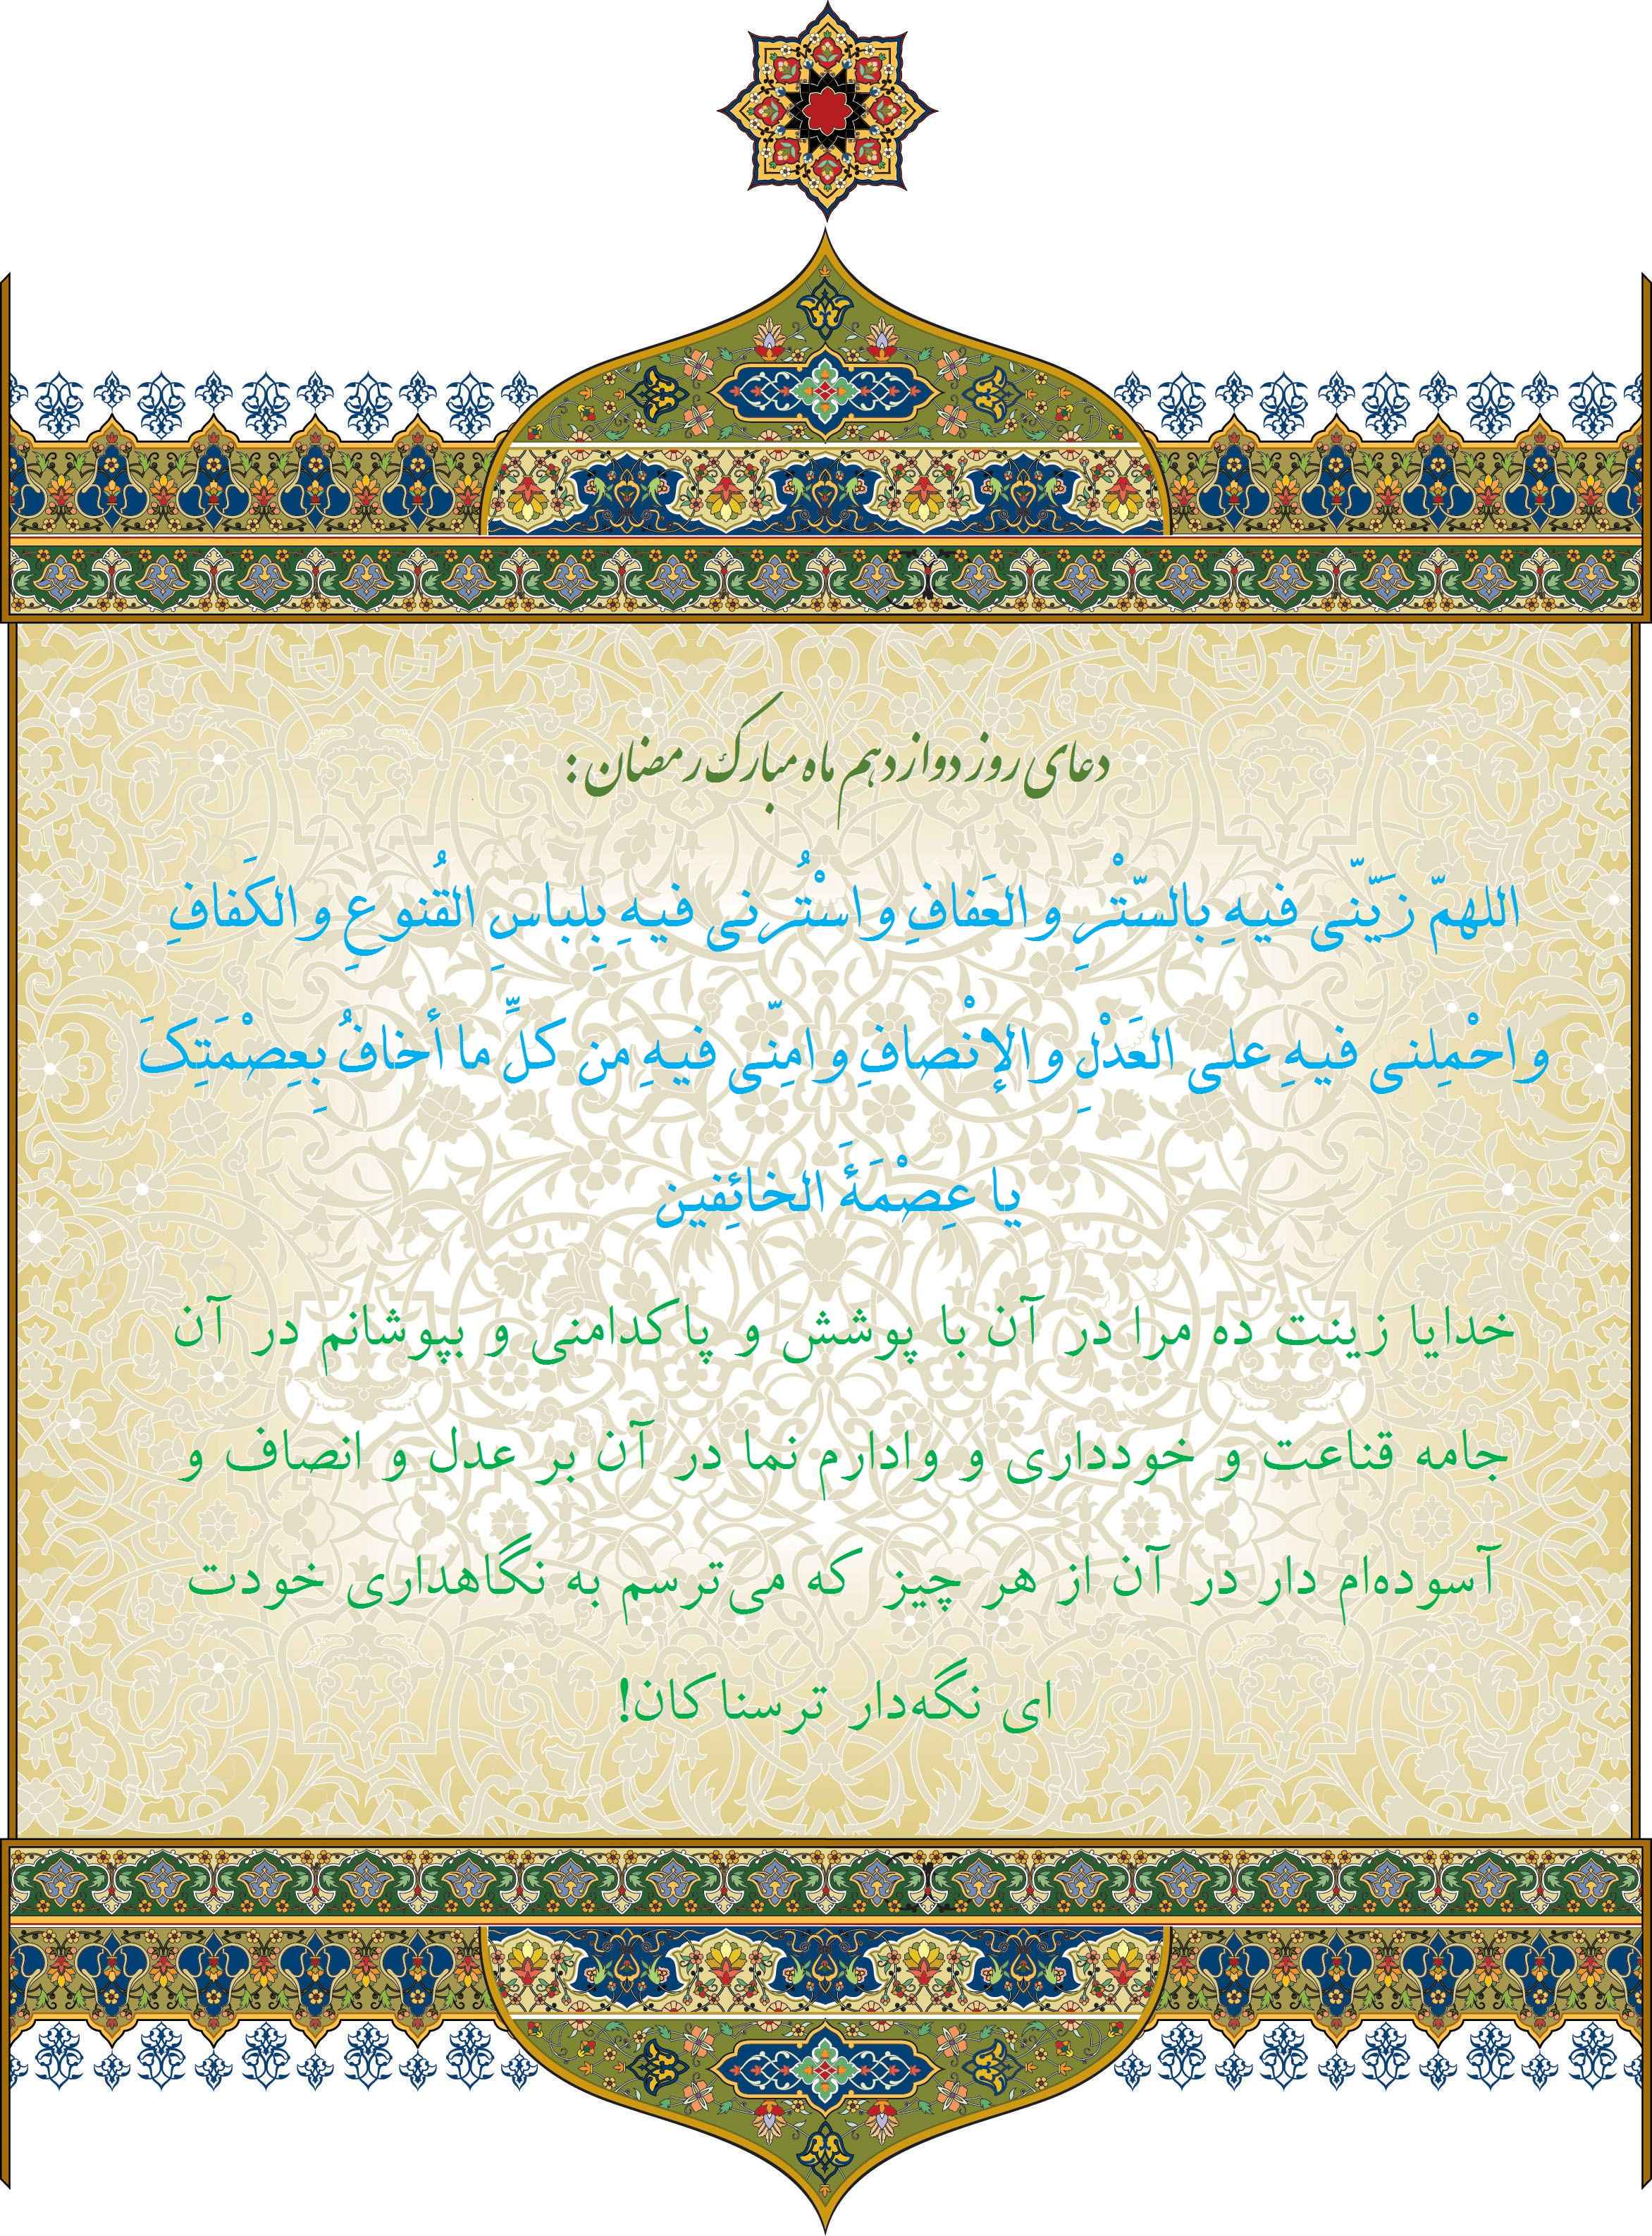 دعای روز دوازدهم ماه مبارک رمضان :
اللهمّ زَیّنّی فیهِ بالسّتْرِ و العَفافِ و اسْتُرنی فیهِ بِلباسِ القُنوعِ و الکَفافِ
و احْمِلنی فیهِ علی العَدْلِ و الإنْصافِ و امِنّی فیهِ من کلِّ ما أخافُ بِعِصْمَتِکَ
یا عِصْمَةَ الخائِفین
خدایا زینت ده مرا در آن با پوشش و پاکدامنی و بپوشانم در آن
جامه قناعت و خودداری و وادارم نما در آن بر عدل و انصاف و
آسوده‌ام دار در آن از هر چیز که می‌ترسم به نگاهداری خودت
ای نگه‌دار ترسناکان!